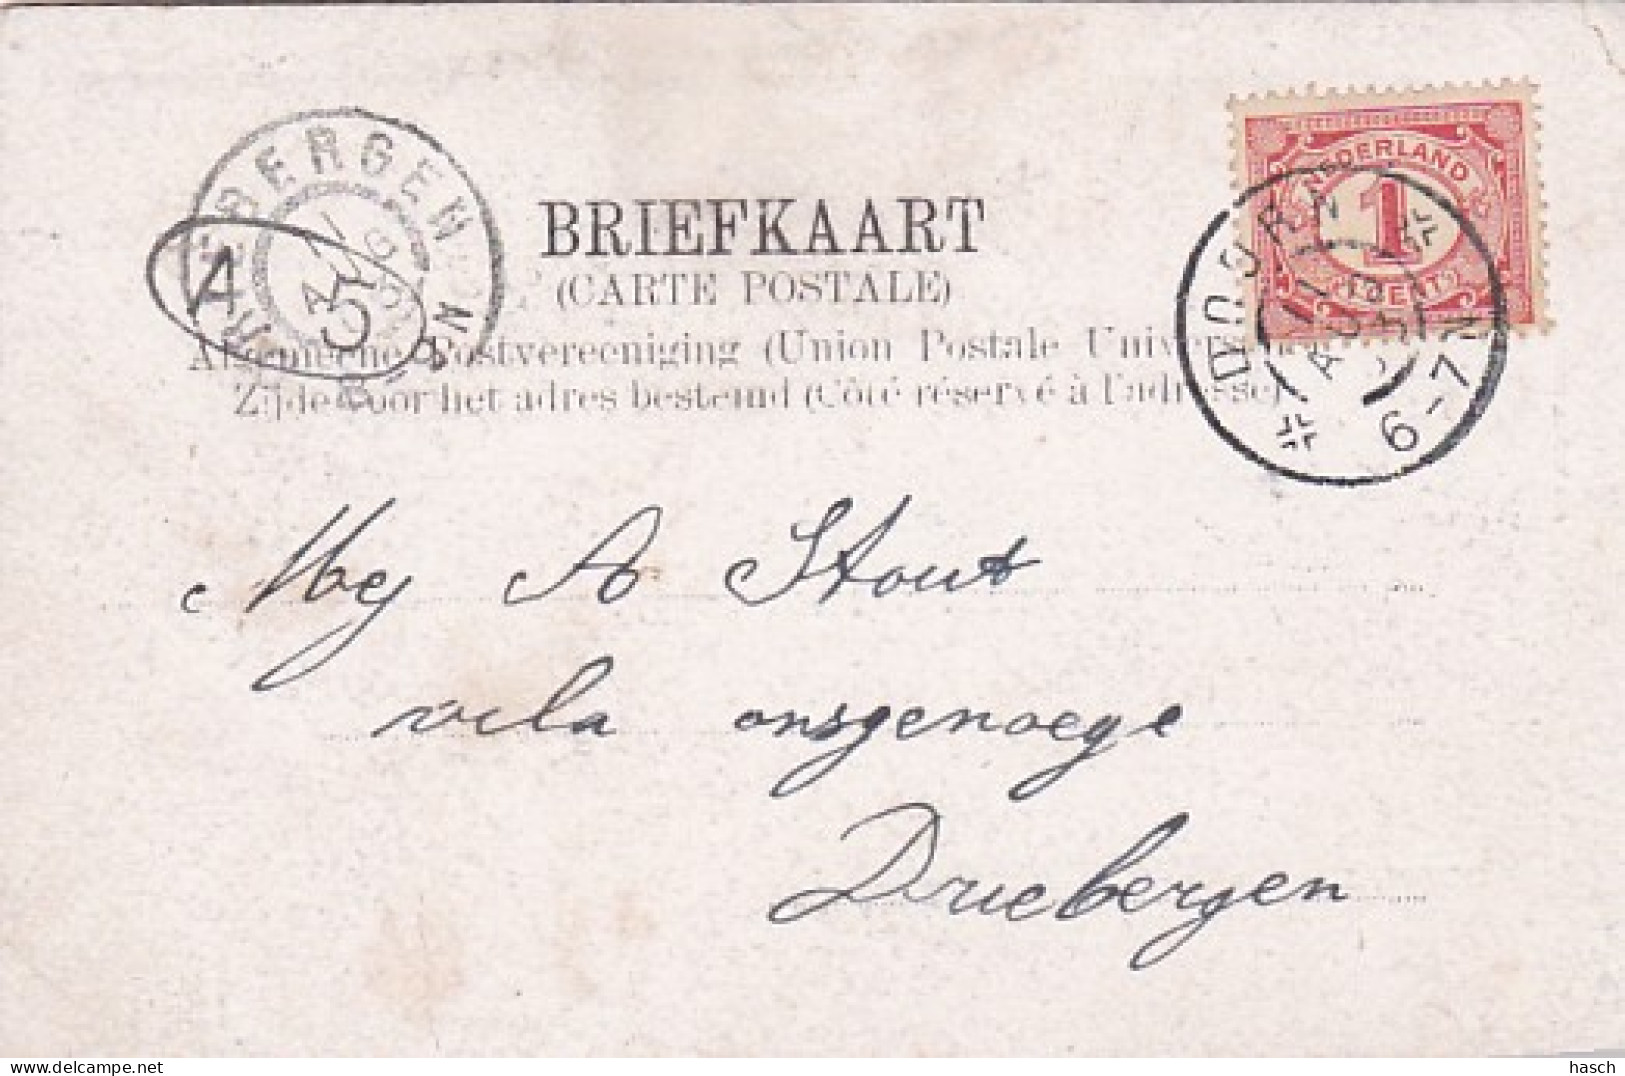 DRIEBERGEN
A
3
AUG
BRIEFKAART
(CARTE POSTALE)
Algemeene Postvereeniging (Union Postale Universelle)
Zijde voor het adres bestemd (Côté réservé à l'adresse)
NEDERLAND
1
CENT
DOORN
11 AUG
6-7N
Mej A Stout
vila onsgenoege
Driebergen
hasch